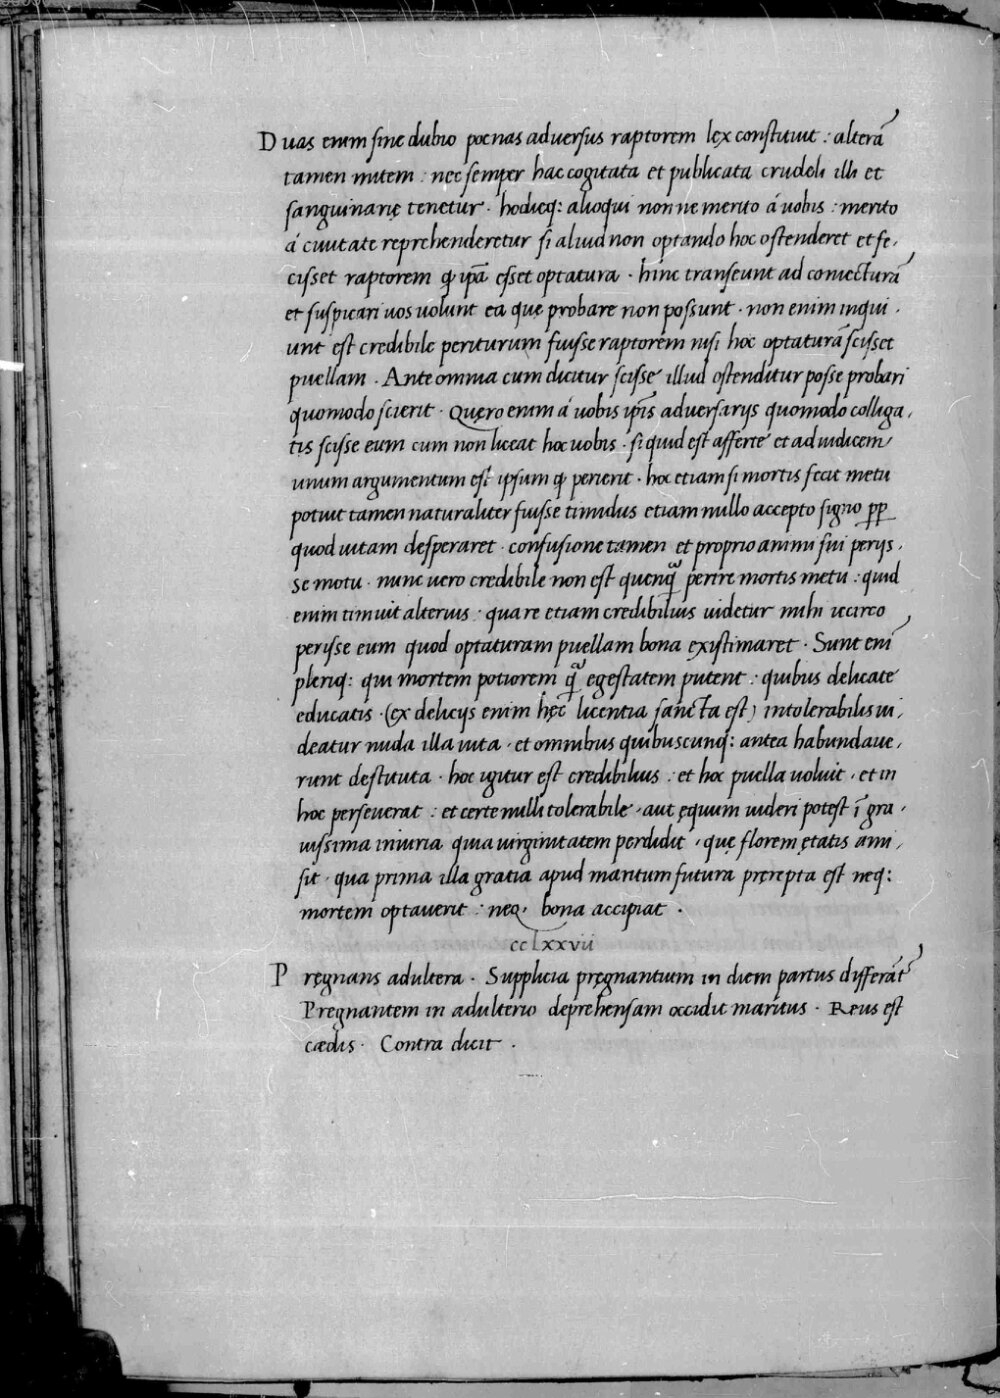 Duas enim sine dubio poenas adversus raptorem lex constituit : alterā
tamen mitem : nec semper hac cogitata et publicata crudeli illi et
sanguinarię tenetur · hodieq: alioqui non ne merito á vobis : merito
á civitate reprehenderetur si aliud non optando hoc ostenderet et fe,
cisset raptorem ꝙ ip̄a esset optatura · hinc transeunt ad coniecturā
et suspicari vos volunt ea quę probare non possunt · non enim inqui,
unt est credibile periturum fuisse raptorem nisi hoc optaturā scisset
puellam · Ante omnia cum dicitur scisse illud ostenditur posse probari
quomodo scierit · Quęro enim á vobis ip̄is adversarijs quomodo colliga,
tis scisse eum cum non liceat hoc vobis · si quid est afferte et ad iudicem
unum argumentum est ipsum ꝙ perierit · hoc etiam si mortis fecit metu
potuit tamen naturaliter fuisse timidus etiam nullo accepto signo pp̄
quod vitam desperaret · confusione tamen et proprio animi sui perijs,
se motu · nunc vero credibile non est quenq̄ perire mortis metu : quid
enim timuit alterius · qua re etiam credibilius videtur mihi iccirco
perijse eum quod optaturam puellam bona existimaret · Sunt enī
pleriq: qui mortem potiorem q̄ egestatem putent : quibus delicate
educatis · (ex delicijs enim hęc licentia sancta est) intolerabilis vi,
deatur nuda illa vita · et omnibus quibuscunq: antea habundave,
runt destituta · hoc igitur est credibilius : et hoc puella voluit · et in
hoc perseverat : et certe nulli tolerabile · aut ęquum videri potest ī gra,
vissima iniuria quia virginitatem perdidit · quę florem ętatis ami,
sit · qua prima illa gratia apud maritum futura pręrepta est neq:
mortem optaverit : neq, bona accipiat ·
cclxxvii
Pręgnans adultera · Supplicia pręgnantium in diem partus differāt
Pregnantem in adulterio deprehensam occidit maritus · Reus est
cædis · Contra dicit ·